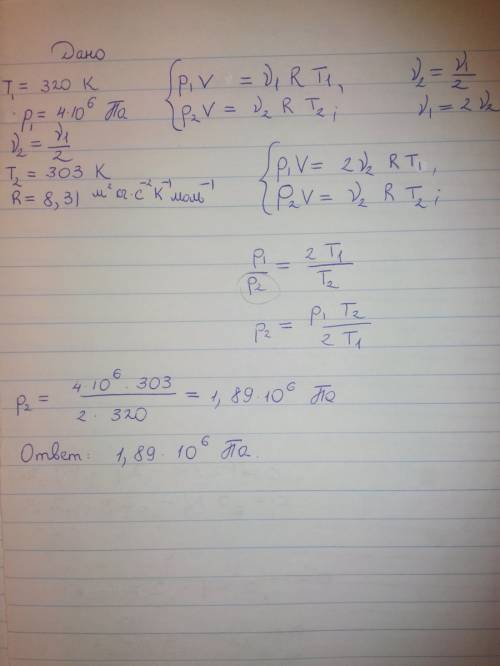 Дано
T₁ = 320 K
p₁ = 4·10⁶ Па
ν₂ = ν₁/2
T₂ = 303 K
R = 8,31 м² кг·с⁻² К⁻¹ моль⁻¹
{ p₁V = ν₁ R T₁,
p₂V = ν₂ R T₂;
ν₂ = ν₁/2
ν₁ = 2 ν₂
{ p₁V = 2ν₂ R T₁,
p₂V = ν₂ R T₂;
p₁/p₂ = 2 T₁/T₂
p₂ = p₁ T₂/2 T₁
p₂ = 4·10⁶·303/2·320 = 1,89·10⁶ Па
Ответ: 1,89·10⁶ Па.